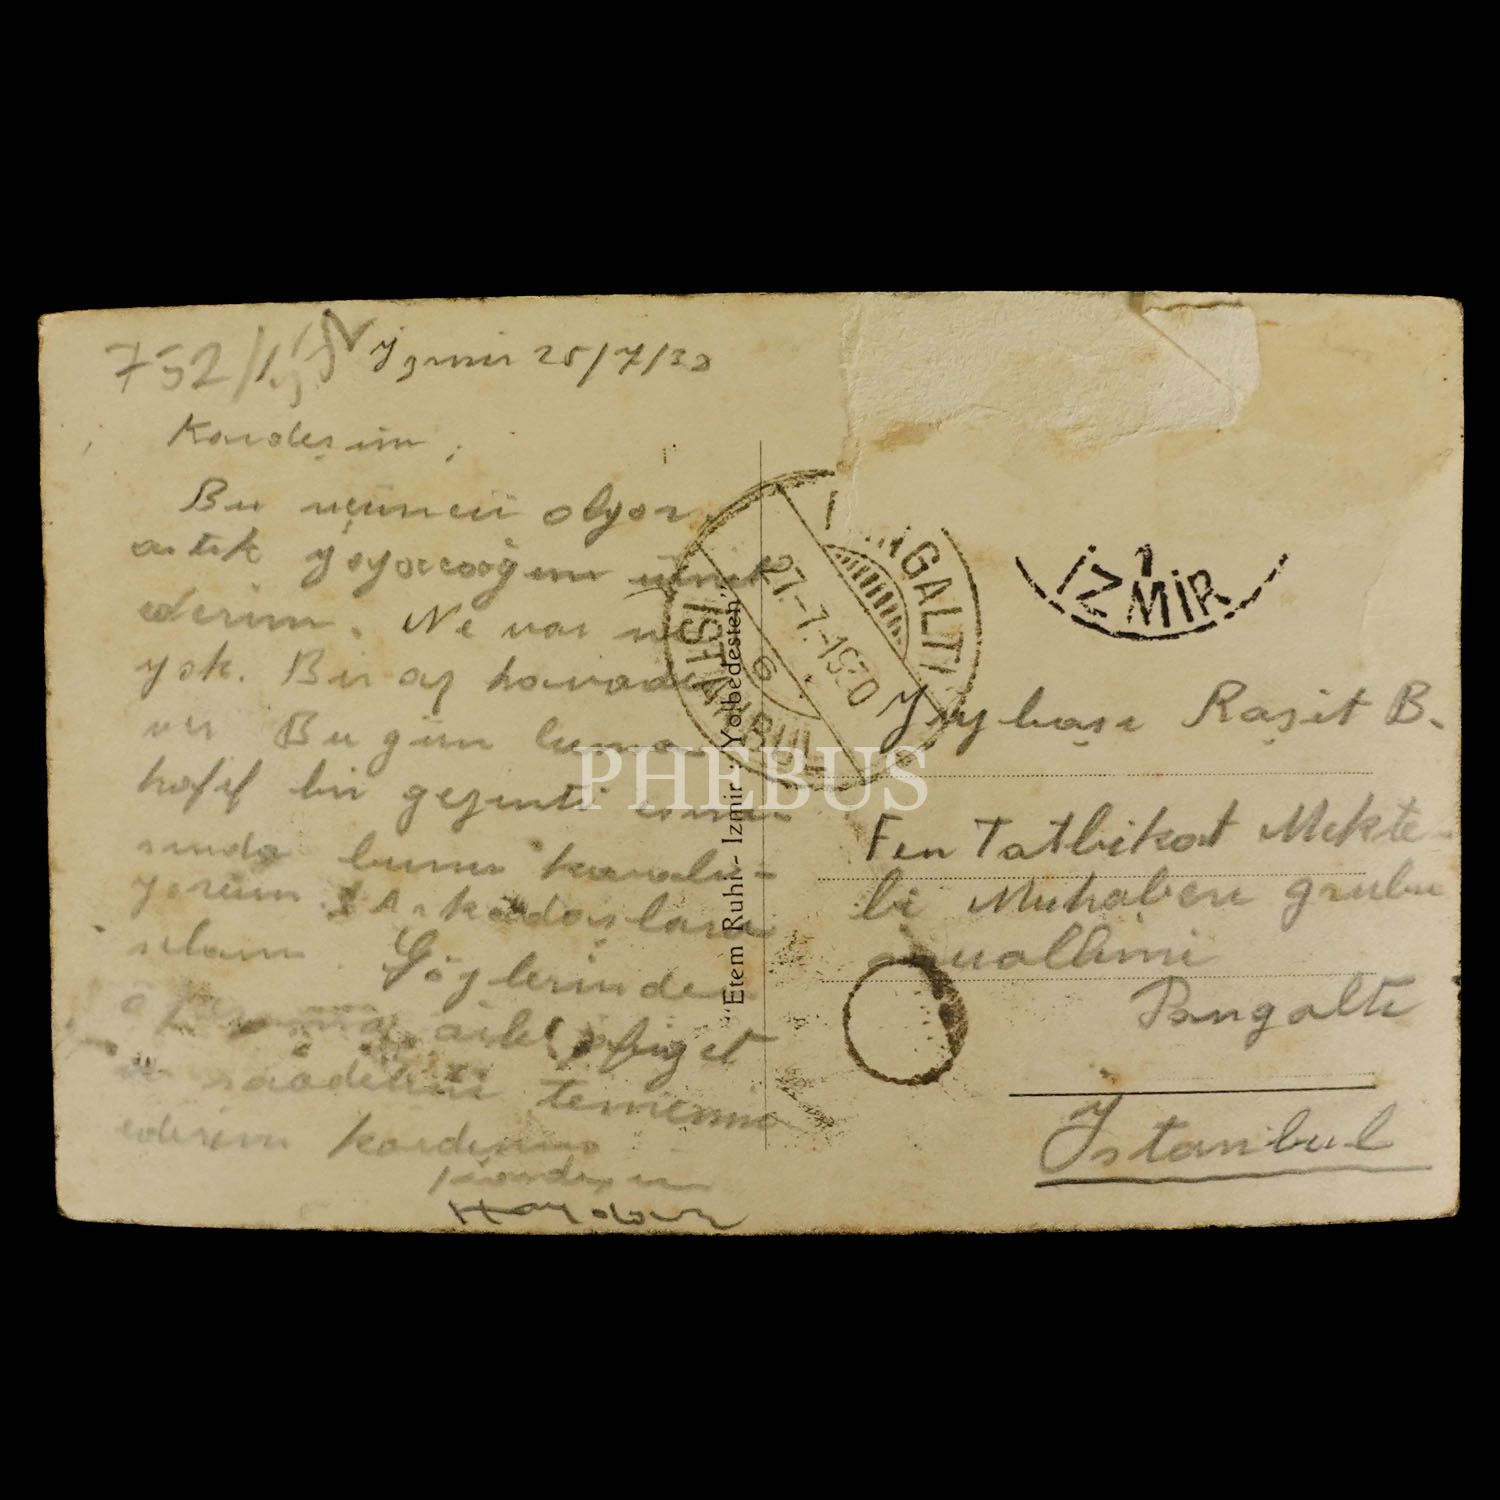 752/
İzmir 25/7/30
Kardeşim,
Bu üçüncü olyor.
artık yayacağını ümit
ederim. Ne var ne
yok. Bir az havadis
ver Bu gün
hafif bir gezinti esna-
sında bunu karalı-
yorum. Arkadaşlara
selam. Gözlerinden
öper
ve saadetini temenni
ederim
Kardeşin
Haydar
"Etem Ruhi - Izmir: Yolbedesten,,
PANGALTI
27-7-1930
6
ISTANBUL
1
İZMİR
Yüzbaşı Raşit B.
Fen Tatbikat Mekte-
bi Muhabere grubu
muallimi
Pangaltı
İstanbul
PHEBUS